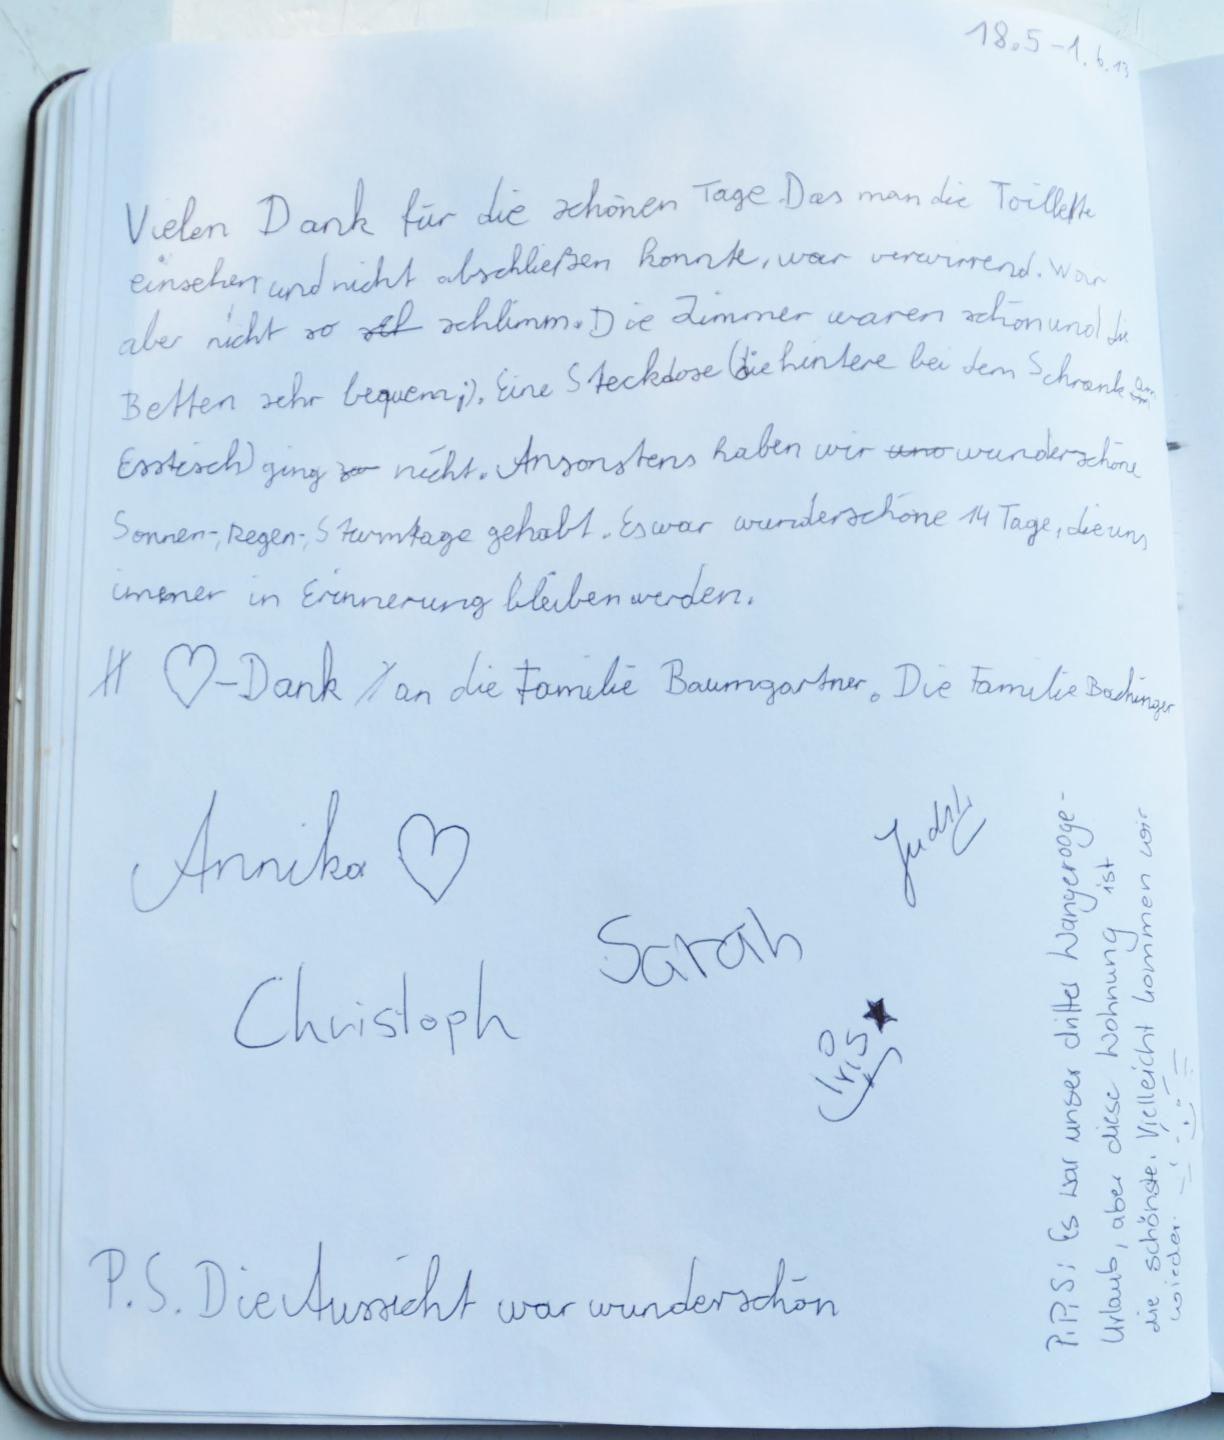 18.5-1.6.13
Vielen Dank für die schönen Tage. Das man die Toillette
einsehen und nicht abschließen konnte, war verwirrend. War
aber nicht so schlimm. Die Zimmer waren schön und die
Betten sehr bequem ;). Eine Steckdose (die hintere bei dem Schrank am
Esstisch) ging nicht. Ansonstens haben wir wunderschöne
Sonnen-, Regen-, Sturmtage gehabt. Es war wunderschöne 14 Tage, die uns
immer in Erinnerung bleiben werden.
♡-Dank an die Familie Baumgartner. Die Familie Bachinger
Annika ♡
Judith
Sarah
Christoph
Iris ★
P.S. Die Aussicht war wunderschön
P.P.S: Es war unser dritter Wangerooge-
Urlaub, aber diese Wohnung ist
die schönste. Vielleicht kommen wir
wieder.